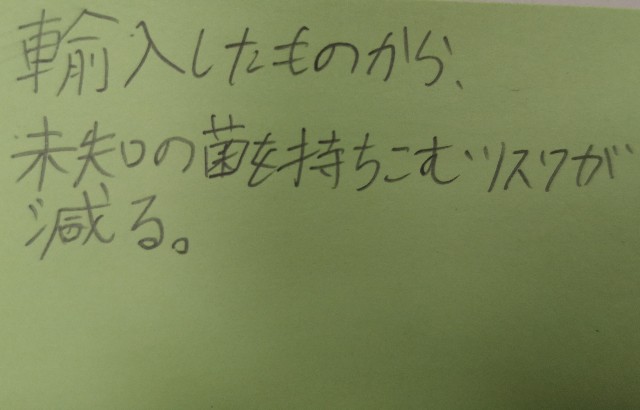 輸入したものから、
未知の菌を持ちこむリスクが
減る。